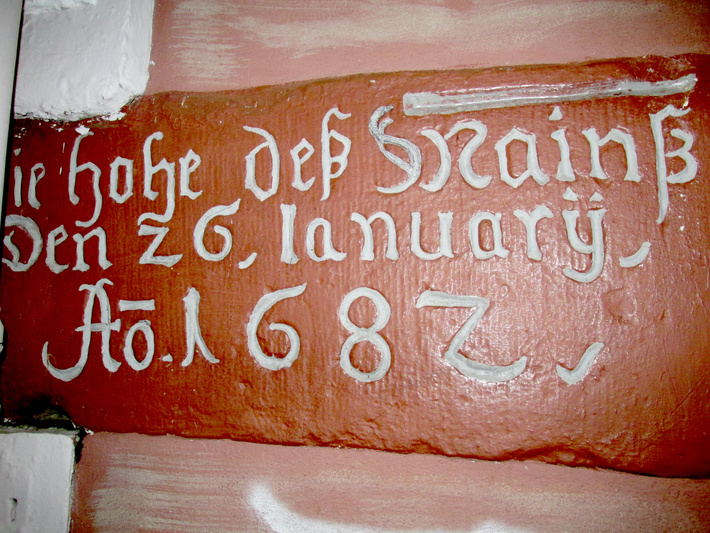 ie hohe deß Mainß
Den 26, Ianuarÿ,
Aō. 1682,